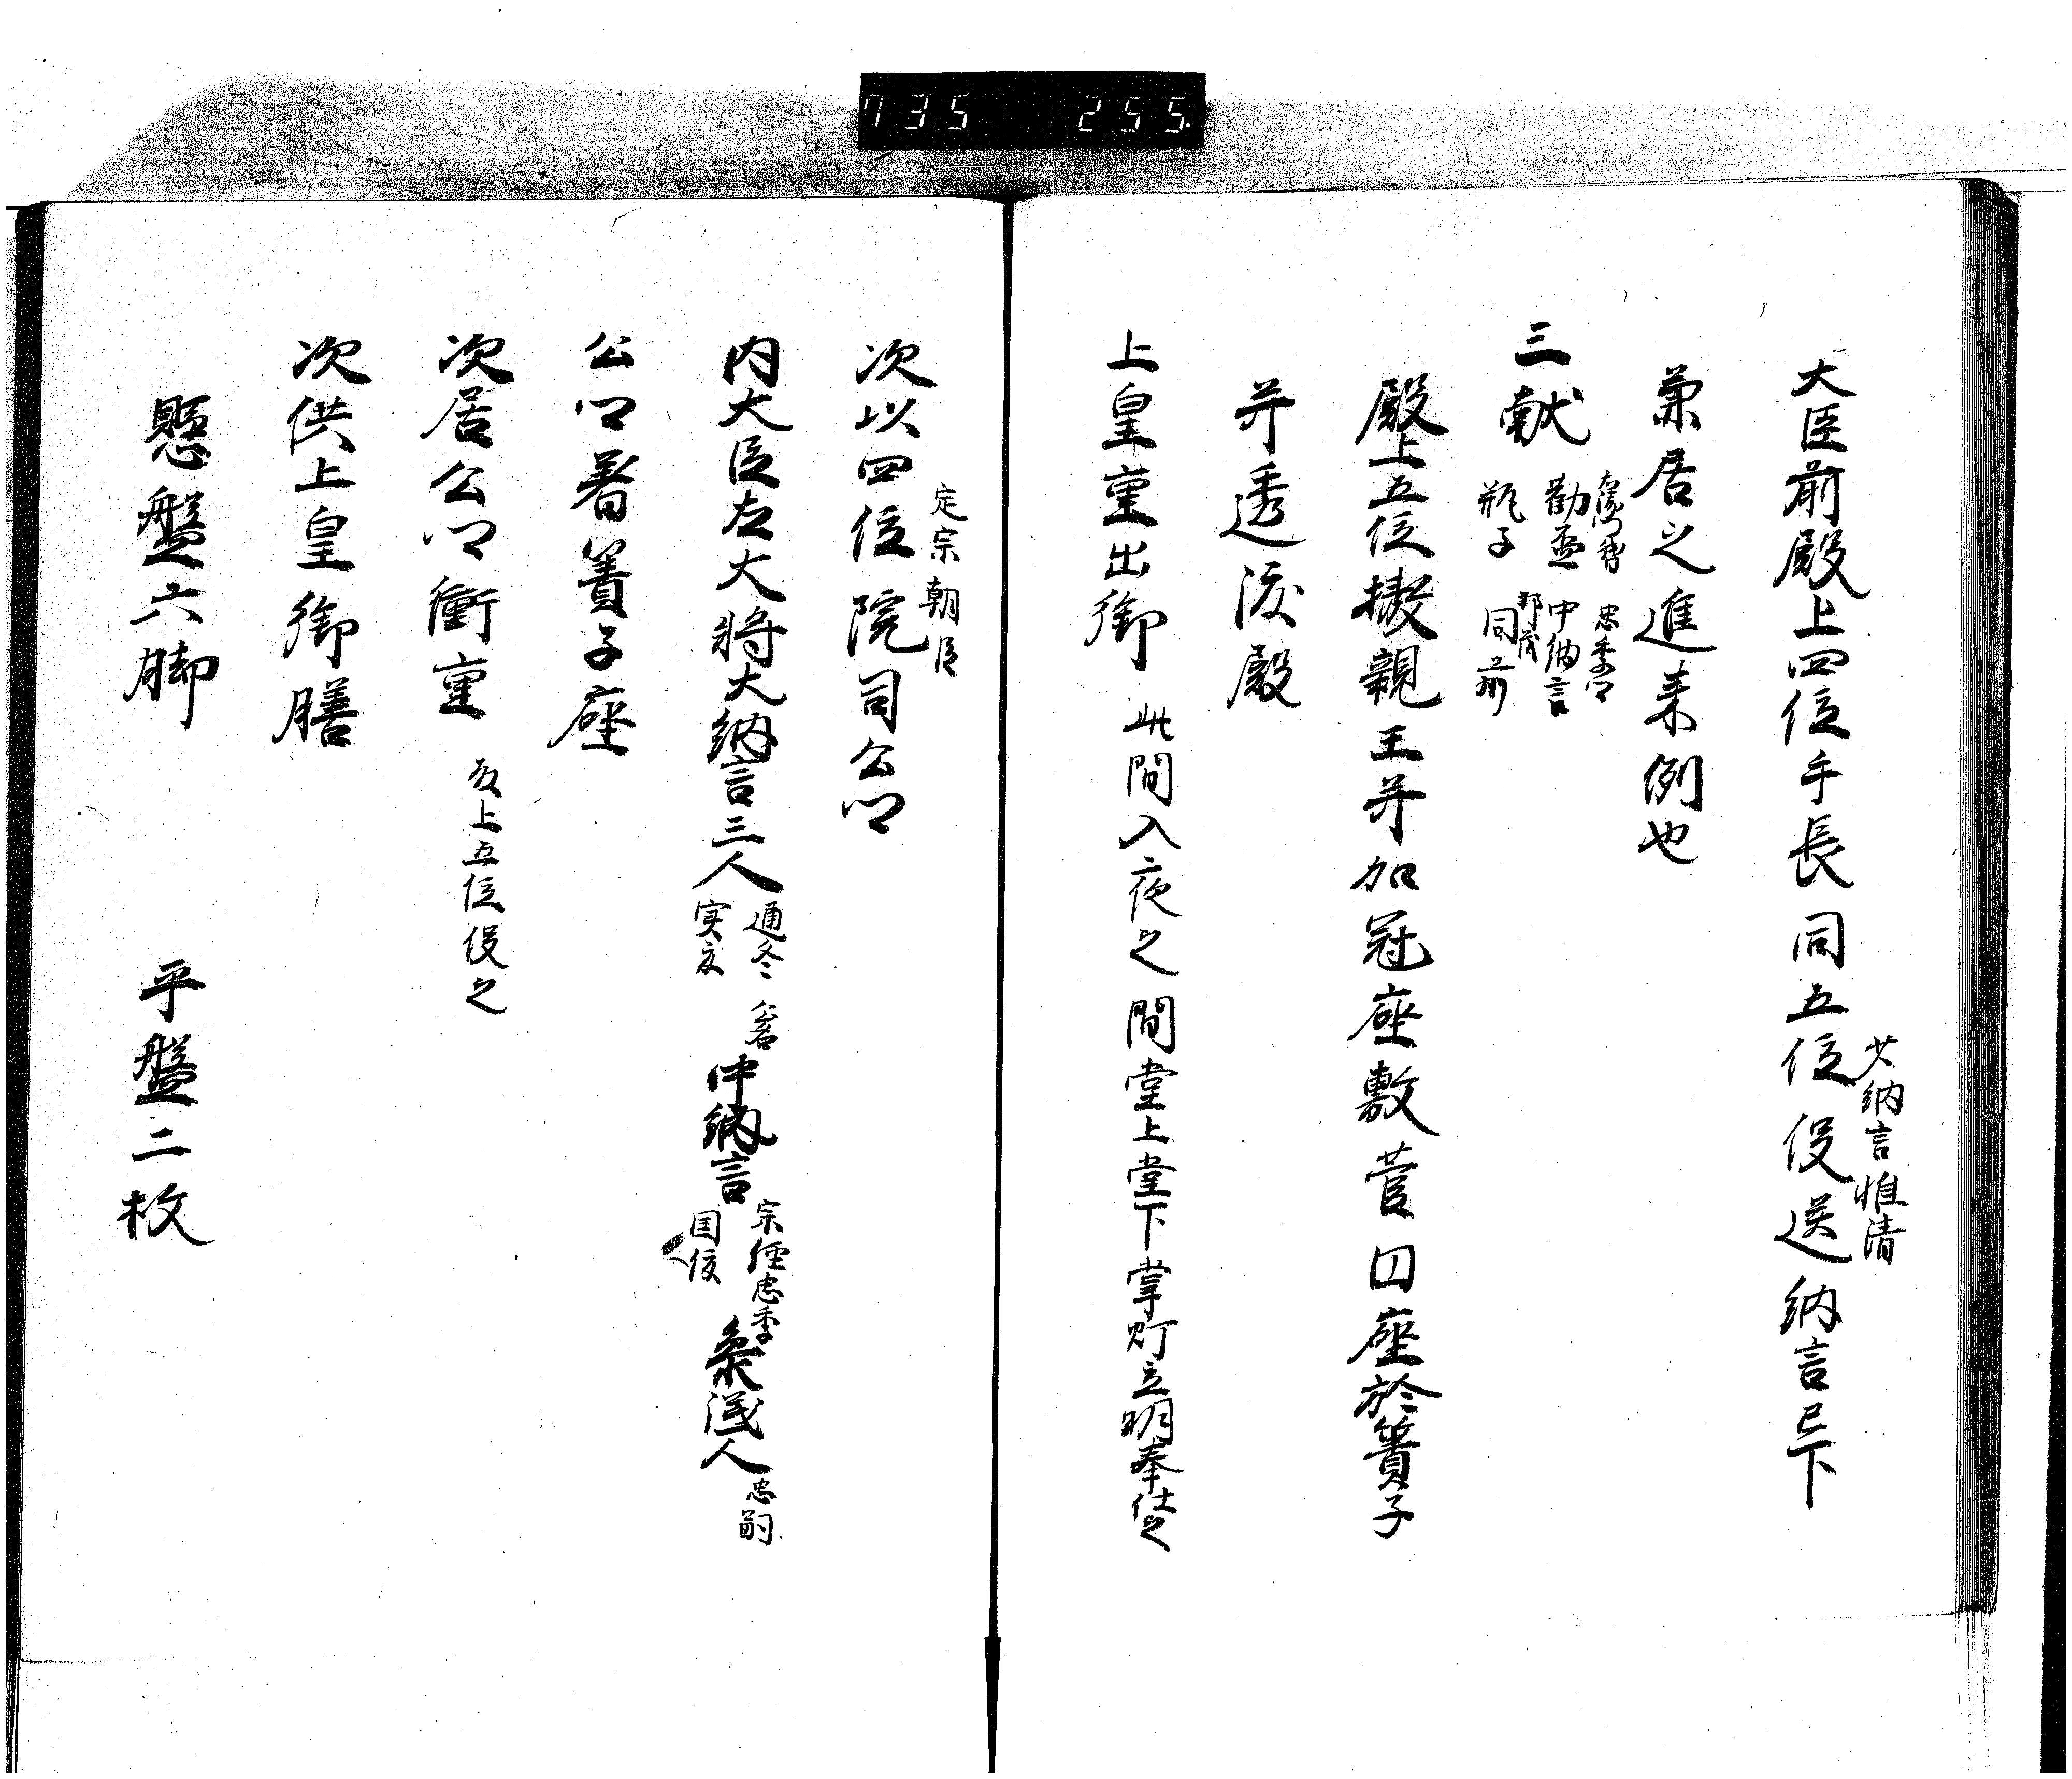 735 255
大臣前殿上四位手長同五位役送納言已下
大納言惟清
兼居之進来例也
三献 勧盃 中納言
忠季卿
瓶子 同前
邦茂
殿上五位撤親王并加冠座敷菅円座於簀子
并透渡殿
上皇重出御 此間入夜之間堂上堂下掌灯立明奉仕之
次以四位院司公卿
定宗朝臣
内大臣左大将大納言三人 通冬 実夏 中納言 宗経忠季 国俊 参議人 忠嗣
公卿着簀子座
次居公卿衝重 殿上五位役之
次供上皇御膳
懸盤六脚 平盤二枚